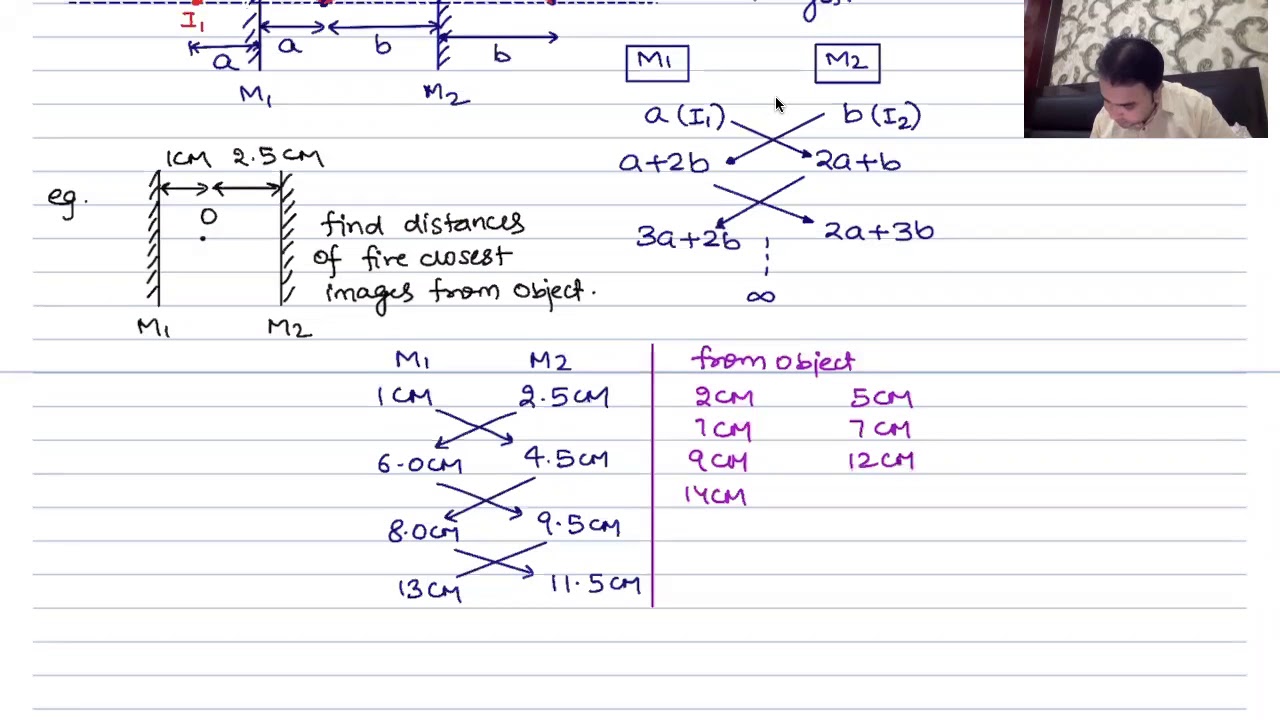 I₁
a
a
b
b
M₁
M₂
M₁
M₂
a (I₁)
b (I₂)
a+2b
2a+b
3a+2b
2a+3b
∞
eg.
1CM 2.5CM
O
find distances
of five closest
images from object.
M₁
M₂
M₁ M₂
1CM 2.5CM
6.0CM 4.5CM
8.0CM 9.5CM
13CM 11.5CM
from object
2CM 5CM
7CM 7CM
9CM 12CM
14CM